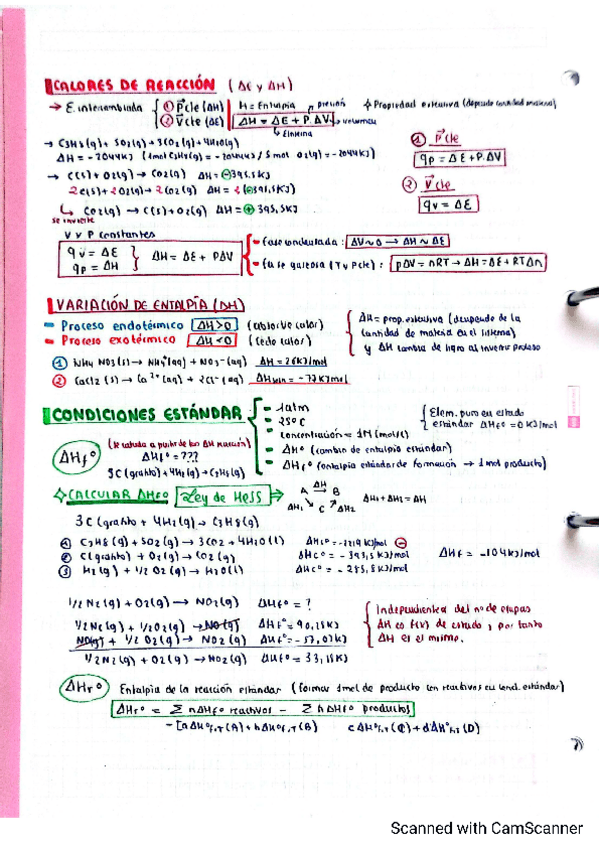 CALORES DE REACCIÓN (ΔE y ΔH)
→ E. intercambiada { ① P cte (ΔH) H = Entalpia presión ✧ Propiedad extensiva (depende cantidad materia)
② V cte (ΔE) ΔH = ΔE + P.ΔV → volumen
↳ E interna
→ C3H8(g) + 5O2(g) → 3CO2(g) + 4H2O(g)
ΔH = -2044KJ (1mol C3H8(g) = -2044KJ / 5 mol O2(g) = -2044KJ)
① P cte
qp = ΔE + P.ΔV
→ C(s) + O2(g) → CO2(g) ΔH = ⊖393,5KJ
2C(s) + 2O2(g) → 2CO2(g) ΔH = 2(⊖393,5KJ)
② V cte
qv = ΔE
↳ CO2(g) → C(s) + O2(g) ΔH = ⊕ 393,5KJ
se invierte
V y P constantes
qv = ΔE
qp = ΔH } ΔH = ΔE + PΔV
- Fase condensada: ΔV≈0 → ΔH ≈ ΔE
- Fase gaseosa (T y P cte): PΔV = nRT → ΔH = ΔE + RTΔn
VARIACIÓN DE ENTALPÍA (ΔH)
- Proceso endotérmico ΔH>0 (absorbe calor)
- Proceso exotérmico ΔH<0 (cede calor)
{ ΔH = prop. extensiva (depende de la
cantidad de materia en el sistema)
y ΔH cambia de signo al invertir proceso
① NH4NO3(s) → NH4+(aq) + NO3-(aq) ΔH = 26KJ/mol
② CaCl2(s) → Ca2+(aq) + 2Cl-(aq)
CONDICIONES ESTÁNDAR
- 1atm
- 25ºC
- concentración = 1M (mol/L)
- ΔHº (cambio de entalpía estándar)
- ΔHfº (entalpía estándar de formación → 1mol producto)
{ Elem. puro en estado
estándar ΔHfº = 0 KJ/mol
ΔHfº
(se calcula a partir de los ΔH reacción)
ΔHfº = ???
3C(grafito) + 4H2(g) → C3H8(g)
✧ CALCULAR ΔHfº Ley de Hess ⇒
A ΔH → B
ΔH1 ↘ C ↗ ΔH2
ΔH1 + ΔH2 = ΔH
3C(grafito) + 4H2(g) → C3H8(g)
① C3H8(g) + 5O2(g) → 3CO2 + 4H2O(l) ΔHcº = -2219KJ/mol ⊖
② C(grafito) + O2(g) → CO2(g) ΔHcº = -393,5KJ/mol ΔHf = -104KJ/mol
③ H2(g) + 1/2 O2(g) → H2O(l) ΔHcº = -285,8KJ/mol
1/2 N2(g) + O2(g) → NO2(g) ΔHfº = ?
1/2 N2(g) + 1/2 O2(g) → NO(g) ΔHfº = 90,25KJ
NO(g) + 1/2 O2(g) → NO2(g) ΔHfº = -57,07KJ
1/2 N2(g) + O2(g) → NO2(g) ΔHfº = 33,18KJ
{ Independiente del nº de etapas
ΔH es f(x) de estado, por tanto
ΔH es el mismo.
ΔHrº Entalpia de la reacción estándar (formar 1mol de producto con reactivos en cond. estándar)
ΔHrº = Σ nΔHfº reactivos - Σ nΔHfº productos
-[aΔHºf,T(A) + bΔHºf,T(B) cΔHºf,T(C) + dΔHºf,T(D)
Scanned with CamScanner